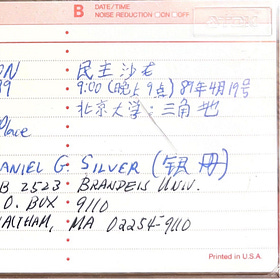 B DATE/TIME
NOISE REDUCTION ON OFF
ON 民主沙龙
89 9:00 (晚上9点) 89年4月19号
北京大学:三角地
Place
ANIEL G. SILVER (银
B 2523 BRANDEIS UNIV.
O. BOX 9110
ALTHAM, MA 02254-9110
Printed in U.S.A.